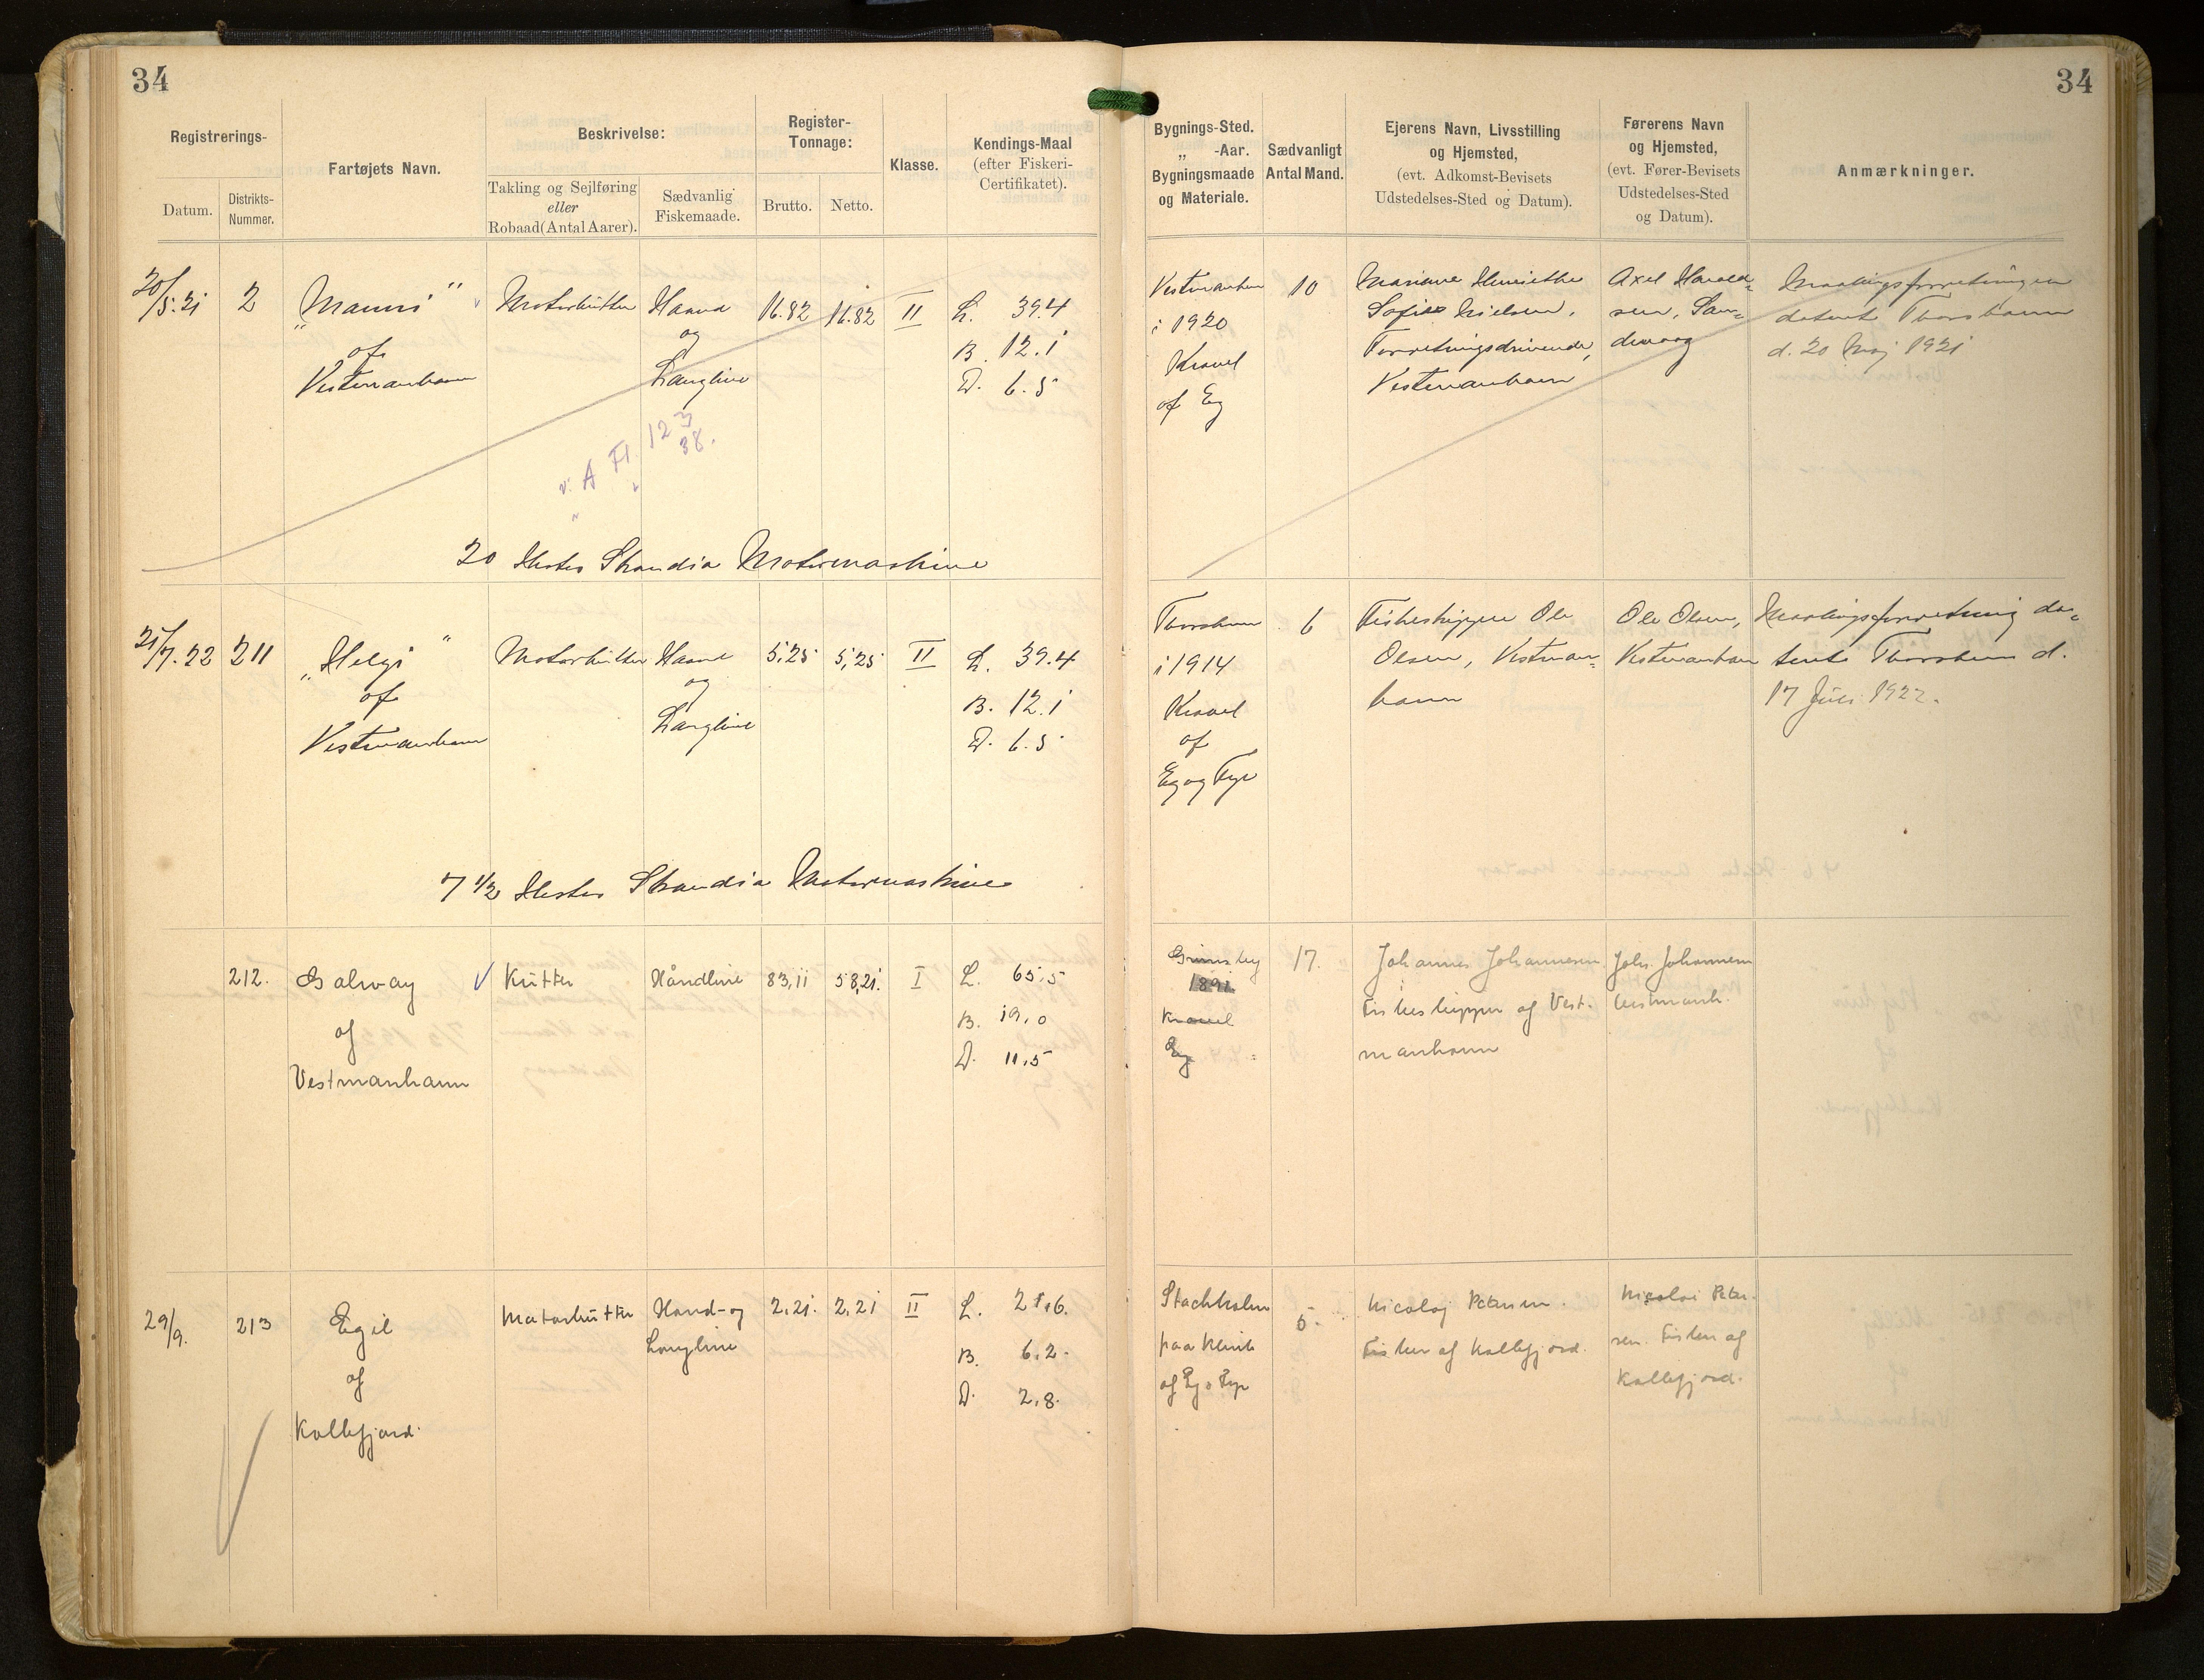 34
34
Registrerings-
Datum.
Distrikts-
Nummer.
Fartøjets Navn.
Beskrivelse:
Takling og Sejlføring
eller
Robaad (Antal Aarer).
Sædvanlig
Fiskemaade.
Register-
Tonnage:
Brutto.
Netto.
Klasse.
Kendings-Maal
(efter Fiskeri-
Certifikatet).
Bygnings-Sted.
„ -Aar.
Bygningsmaade
og Materiale.
Sædvanligt
Antal Mand.
Ejerens Navn, Livsstilling
og Hjemsted,
(evt. Adkomst-Bevisets
Udstedelses-Sted og Datum).
Førerens Navn
og Hjemsted,
(evt. Fører-Bevisets
Udstedelses-Sted
og Datum).
Anmærkninger.
20/5.21
2
„Manni"
of
Vestmanhavn
Motorkutter
Haand
og
Langline
16.82
16.82
II
L. 39.4
B. 12.1
D. 6.5
A Fl. 123
38.
20 Hestes Skandia Motormaskine
Vestmanhavn
i 1920
Kravel
of Eg
10
Mariane Henriette
Sofie Nielsen,
Forretningsdrivende,
Vestmanhavn
Axel Harald=
sen, San=
devaag
Maalingsforretningen
dateret Thorshavn
d. 20 Maj 1921
21/7.22
211
„Helgi"
of
Vestmanhavn
Motorkutter
Haand
og
Langline
5,25
5,25
II
L. 39.4
B. 12.1
D. 6.5
7 1/2 Hestes Skandia Motormaskine
Thorshavn
i 1914
Kravel
of
Eg og Fyr
6
Fiskeskipper Ole
Olsen, Vestman=
havn
Ole Olsen,
Vestmanhavn
Maalingsforretning da=
teret Thorshavn d.
17 Juli 1922.
212.
Galway
of
Vestmanhavn
Kutter
Håndline
83,11
58,21.
I
L. 65,5
B. 19,0
D. 11,5
Grimsby
1891
Kravel
Eg
17.
Johannes Johannesen
Fiskeskipper af Vest-
manhavn
Johs. Johannesen
Vestmanh.
29/9.
213
Egil
of
Kollefjord.
Motorkutter
Haand- og
Langline
2,21.
2,21
II
L. 21,6.
B. 6,2.
D. 2,8.
Stockholm
paa Klink
of Eg o Fyr
5.
Nicolaj Petersen.
Fisker af Kollefjord.
Nicolai Peter-
sen. Fisker af
Kollefjord.